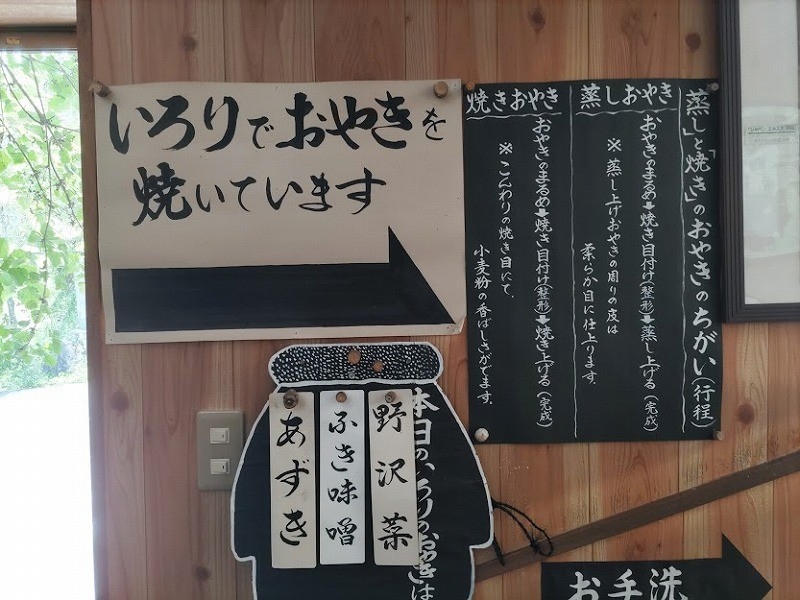 いろりでおやきを
焼いています
蒸し」と「焼き」のおやきのちがい(行程)
蒸しおやき
おやきのまるめ➡焼き目付け(整形)➡蒸し上げる(完成)
※蒸し上げおやきの周りの皮は
柔らか目に仕上ります。
焼きおやき
おやきのまるめ➡焼き目付け(整形)➡焼き上げる(完成)
※こんわりの焼き目にて、
小麦粉の香ばしさがでます。
本日のいろりのおやきは
野沢菜
ふき味噌
あずき
お手洗